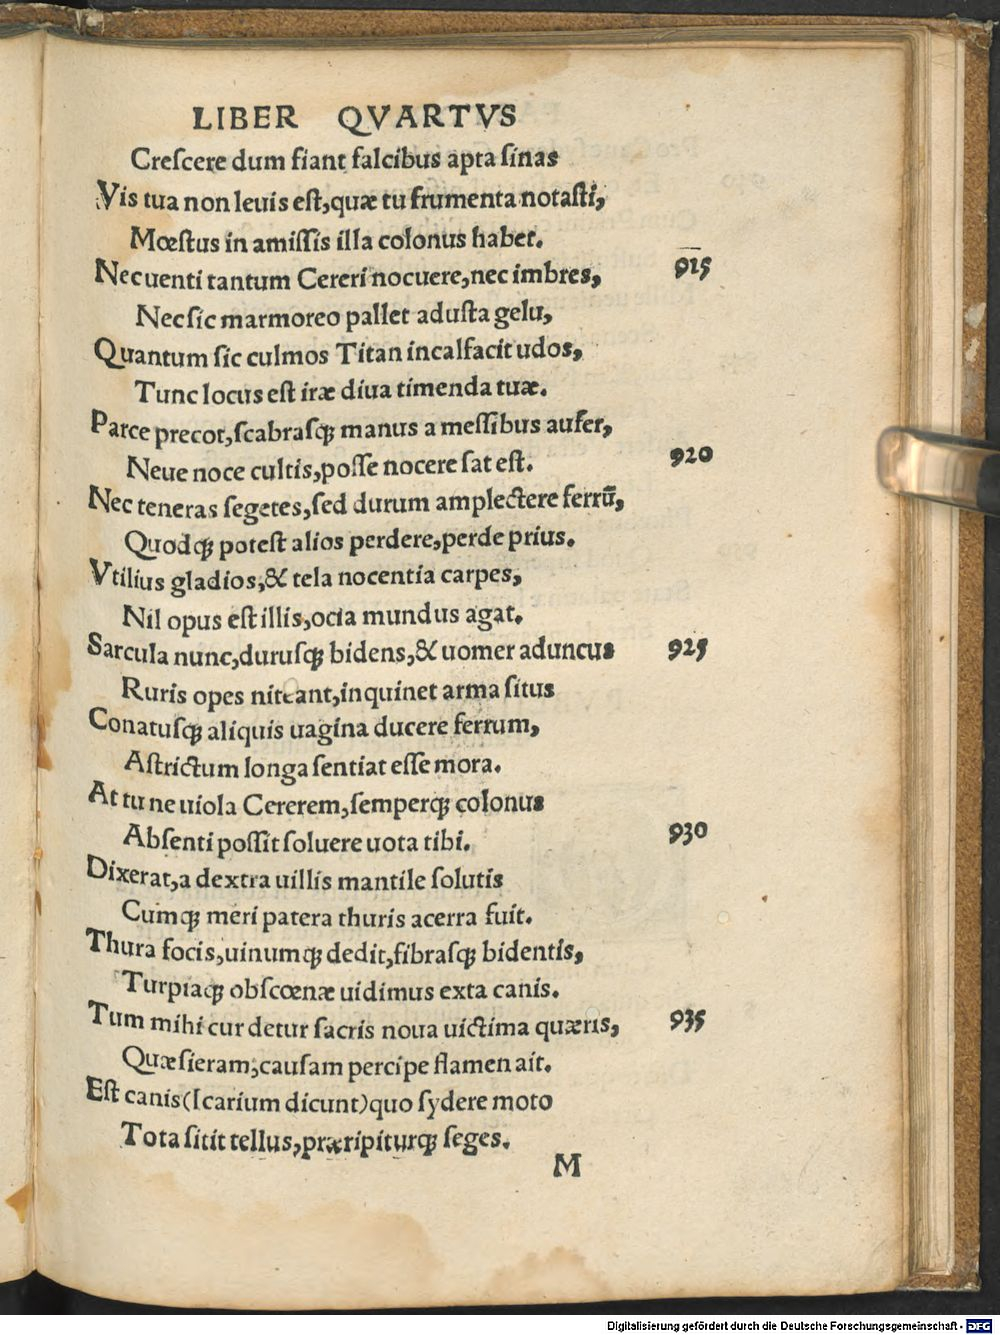 LIBER QVARTVS
Creſcere dum fiant falcibus apta ſinas
Vis tua non leuis eſt, quæ tu frumenta notaſti,
Mœſtus in amiſſis illa colonus habet.
Nec uenti tantum Cereri nocuere, nec imbres, 915
Nec ſic marmoreo pallet aduſta gelu,
Quantum ſic culmos Titan incalfacit udos,
Tunc locus eſt iræ diua timenda tuæ.
Parce precor, ſcabraſq; manus a meſſibus aufer,
Neue noce cultis, poſſe nocere ſat eſt. 920
Nec teneras ſegetes, ſed durum amplectere ferrū,
Quodq; poteſt alios perdere, perde prius.
Vtilius gladios, & tela nocentia carpes,
Nil opus eſt illis, ocia mundus agat.
Sarcula nunc, duruſq; bidens, & uomer aduncus 925
Ruris opes niteant, inquinet arma ſitus
Conatuſq; aliquis uagina ducere ferrum,
Aſtrictum longa ſentiat eſſe mora.
At tu ne uiola Cererem, ſemperq; colonus
Abſenti poſſit ſoluere uota tibi. 930
Dixerat, a dextra uillis mantile ſolutis
Cumq; meri patera thuris acerra fuit.
Thura focis, uinumq; dedit, fibraſq; bidentis,
Turpiaq; obſcœnæ uidimus exta canis.
Tum mihi cur detur ſacris noua uictima quæris, 935
Quæſieram, cauſam percipe flamen ait.
Eſt canis (Icarium dicunt) quo ſydere moto
Tota ſitit tellus, præripiturq; ſeges.
M
Digitalisierung gefördert durch die Deutsche Forschungsgemeinschaft - DFG